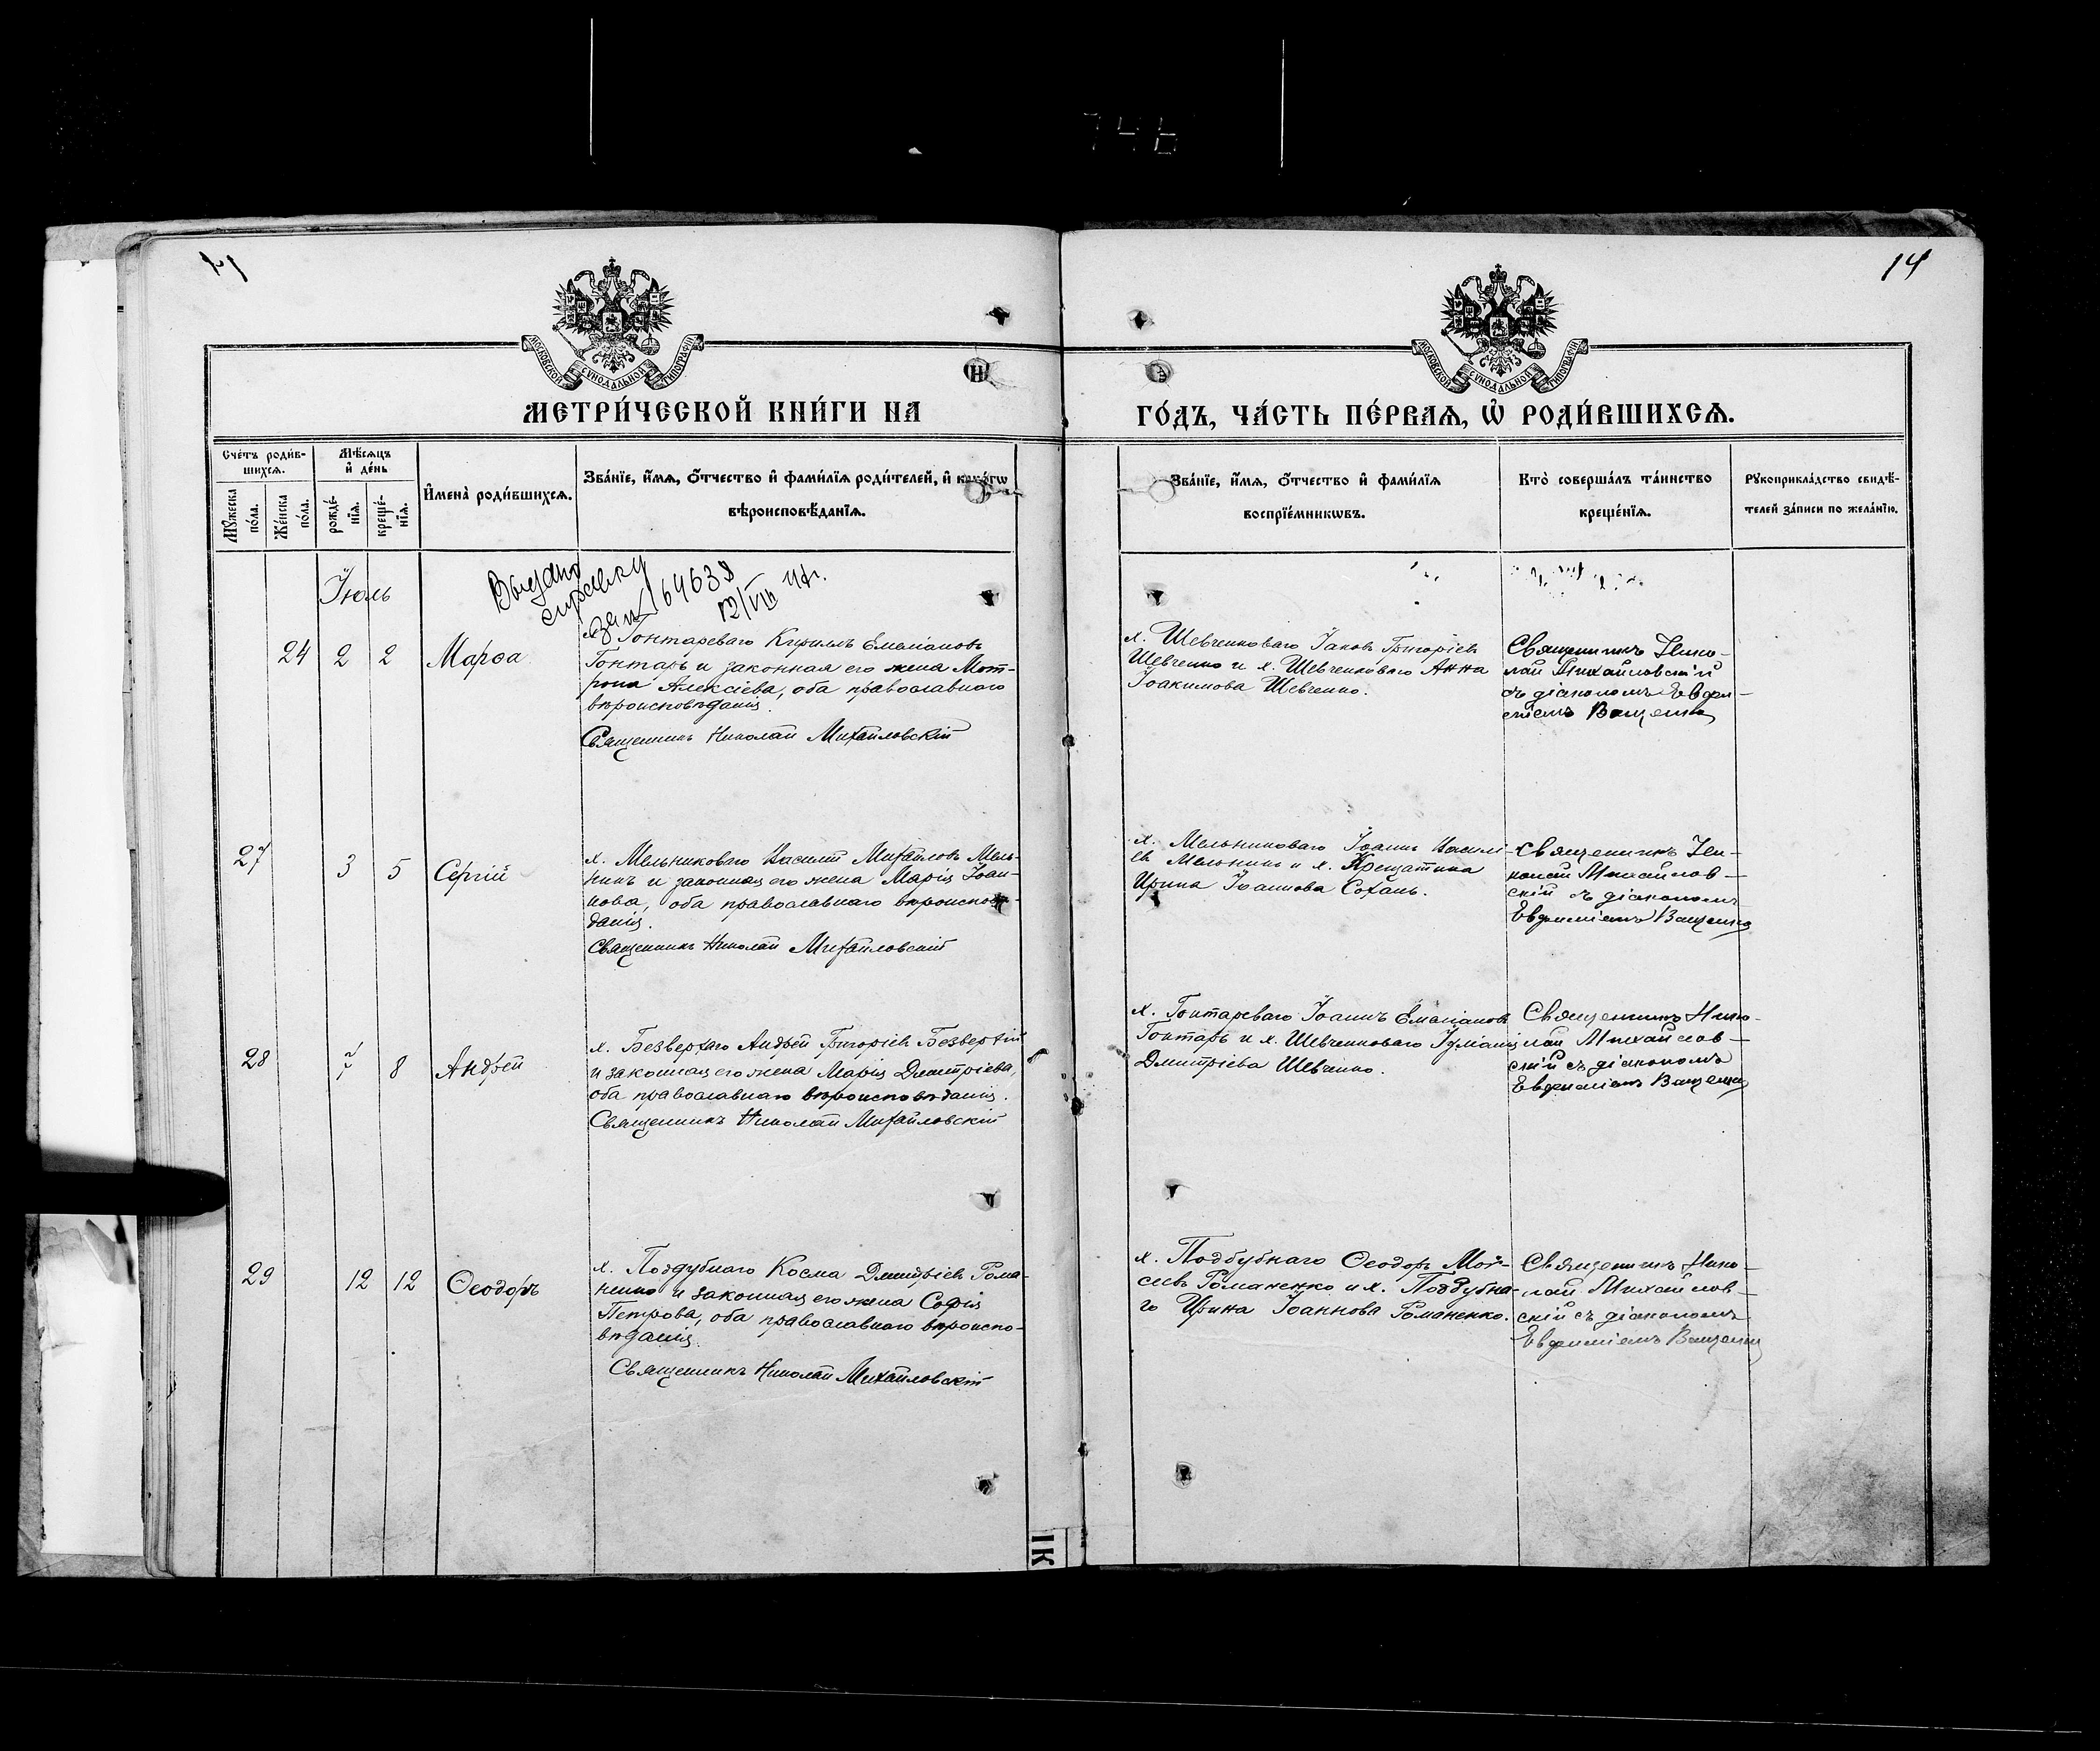 746
14
МОСКОВСКОЙ СУНОДАЛЬНОЙ ТИПОГРАФІИ
МОСКОВСКОЙ СУНОДАЛЬНОЙ ТИПОГРАФІИ
МЕТРИ́ЧЕСКОЙ КНИ́ГИ НА
ГО́ДЪ, ЧА́СТЬ ПЕ́РВАѦ, Ѡ҆ РОДИ́ВШИХСѦ.
Сче́тъ роди́в-
шихсѧ.
Мѣ́сѧцъ
и҆ де́нь
Мꙋ́жеска
по́ла.
Же́нска
по́ла.
рожде́-
нїѧ.
креще́-
нїѧ.
И҆мена̀ роди́вшихсѧ.
Зва́нїе, и҆́мѧ, ѻ҆́тчество и҆ фами́лїѧ роди́телей, и҆ како́гѡ
вѣроисповѣ́данїѧ.
Зва́нїе, и҆́мѧ, ѻ҆́тчество и҆ фами́лїѧ
воспрїе́мникѡвъ.
Кто̀ соверша́лъ та́инство
креще́нїѧ.
Рꙋкоприкла́дство свидѣ́-
телей за́писи по жела́нїю.
Выдано
справку
за № 16463
12/VIII 44г.
Іюль
24 2 2 Марѳа
х. Гонтареваго Кириллъ Емеліановъ
Гонтарь и законная его жена Мот-
рона Алексіева, оба православнаго
вѣроисповѣданія.
Священникъ Николай Михайловскій
х. Шевченковаго Іаковъ Григоріевъ
Шевченко и х. Шевченковаго Анна
Іоакимова Шевченко.
Священникъ Нико-
лай Михайловскій
съ діакономъ Евфи-
міемъ Ващенко
27 3 5 Сергій
х. Мельниковаго Василій Михайловъ Мель-
никъ и законная его жена Марія Іоан-
нова, оба православнаго вѣроисповѣ-
данія.
Священникъ Николай Михайловскій
х. Мельниковаго Іоаннъ Васильі-
евъ Мельникъ и х. Крещатика
Ирина Іоаннова Сохань.
Священникъ Ни-
колай Михайлов-
скій съ діакономъ
Евфиміемъ Ващенко
28 7 8 Андрей
х. Безверхаго Андрей Григоріевъ Безверхій
и законная его жена Марія Димитріева,
оба православнаго вѣроисповѣданія.
Священникъ Николай Михайловскій
х. Гонтареваго Іоаннъ Емеліановъ
Гонтарь и х. Шевченковаго Іуліанія
Дмитріева Шевченко.
Священникъ Нико-
лай Михайлов-
скій съ діакономъ
Евфиміемъ Ващенко
29 12 12 Ѳеодоръ
х. Поддубнаго Косма Димитріевъ Рома-
ненко и законная его жена Софія
Петрова, оба православнаго вѣроиспо-
вѣданія.
Священникъ Николай Михайловскій
х. Поддубнаго Ѳеодоръ Мой-
сеевъ Романенко и х. Поддубна-
го Ирина Іоаннова Романенко.
Священникъ Нико-
лай Михайлов-
скій съ діакономъ
Евфиміемъ Ващенко